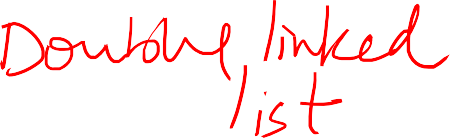 Double linked
list